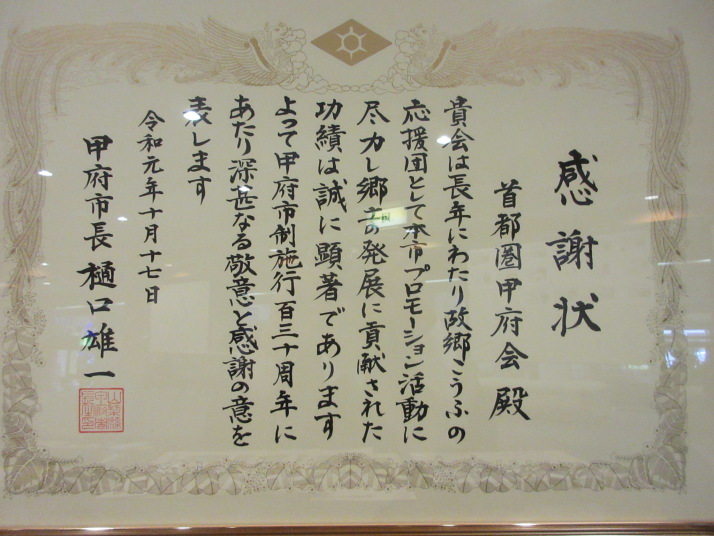 感謝状
首都圏甲府会殿
貴会は長年にわたり故郷こうふの
応援団として本市プロモーション活動に
尽力し郷土の発展に貢献された
功績は誠に顕著であります
よって甲府市制施行百三十周年に
あたり深甚なる敬意と感謝の意を
表します
令和元年十月十七日
甲府市長 樋口雄一